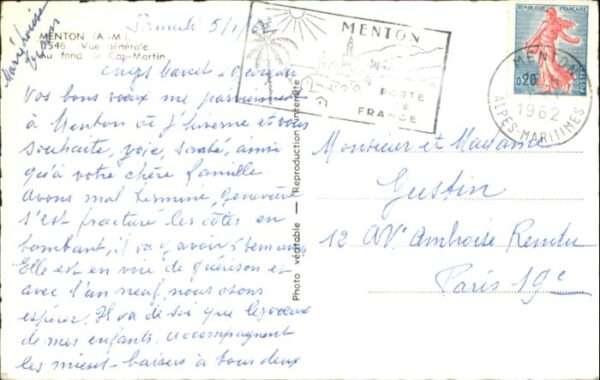 Samedi 5/1/62
MENTON (A.-M.)
Vue générale
Au fond le Cap-Martin
Vos bons vœux me parviennent
à Menton où j'hiverne et vous
souhaite, joie, santé, ainsi
qu'à votre chère famille
Avons mal terminé, Geneviève
s'est fracturé les côtes en
tombant, il y a 5 semaines
Elle est en voie de guérison et
avec l'an neuf, nous osons
espérer. Il va de soi que les vœux
de mes enfants accompagnent
les miens - baisers à tous deux
Photo véritable — Reproduction interdite
MENTON
PORTE
DE
FRANCE
REPUBLIQUE FRANÇAISE
0,20
MENTON
1962
ALPES-MARITIMES
Monsieur et Madame
Gustin
12 Av^e Ambroise Rendu
Paris 19^e